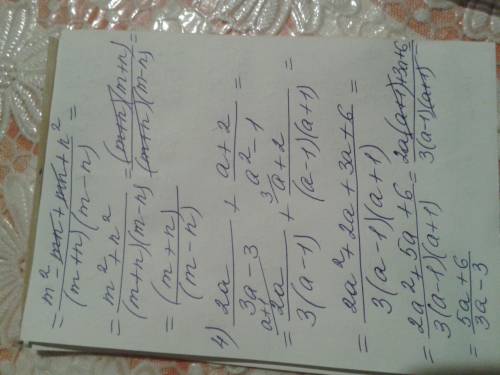 = (m² - mn + mn + n²)/((m+n)(m-n)) =
= (m² + n²)/((m+n)(m-n)) = ((m+n)(m+n))/((m+n)(m-n)) =
= (m+n)/(m-n)
4) 2a/(3a-3) + (a+2)/(a²-1) =
= ᵃ⁺¹ 2a/(3(a-1)) + ³ (a+2)/((a-1)(a+1)) =
= (2a² + 2a + 3a + 6)/(3(a-1)(a+1)) =
= (2a² + 5a + 6)/(3(a-1)(a+1)) = (2a(a+1)+3a+6)/(3(a-1)(a+1))
= (5a+6)/(3a-3)